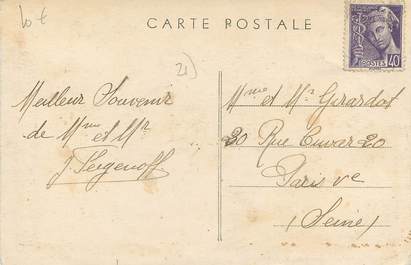 10 €
CARTE POSTALE
21)
POSTES 40
Meilleur Souvenir
de Mme et Mr
J. Sergenoff
Mme et Mr Girardot
20 Rue Cuvar 20
Paris Ve
(Seine)